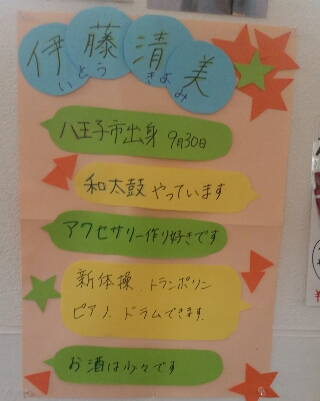 伊藤清美
いとう きよみ
八王子市出身 9月30日
和太鼓 やっています
アクセサリー作り好きです
新体操、トランポリン
ピアノ、ドラムできます。
お酒は少々です